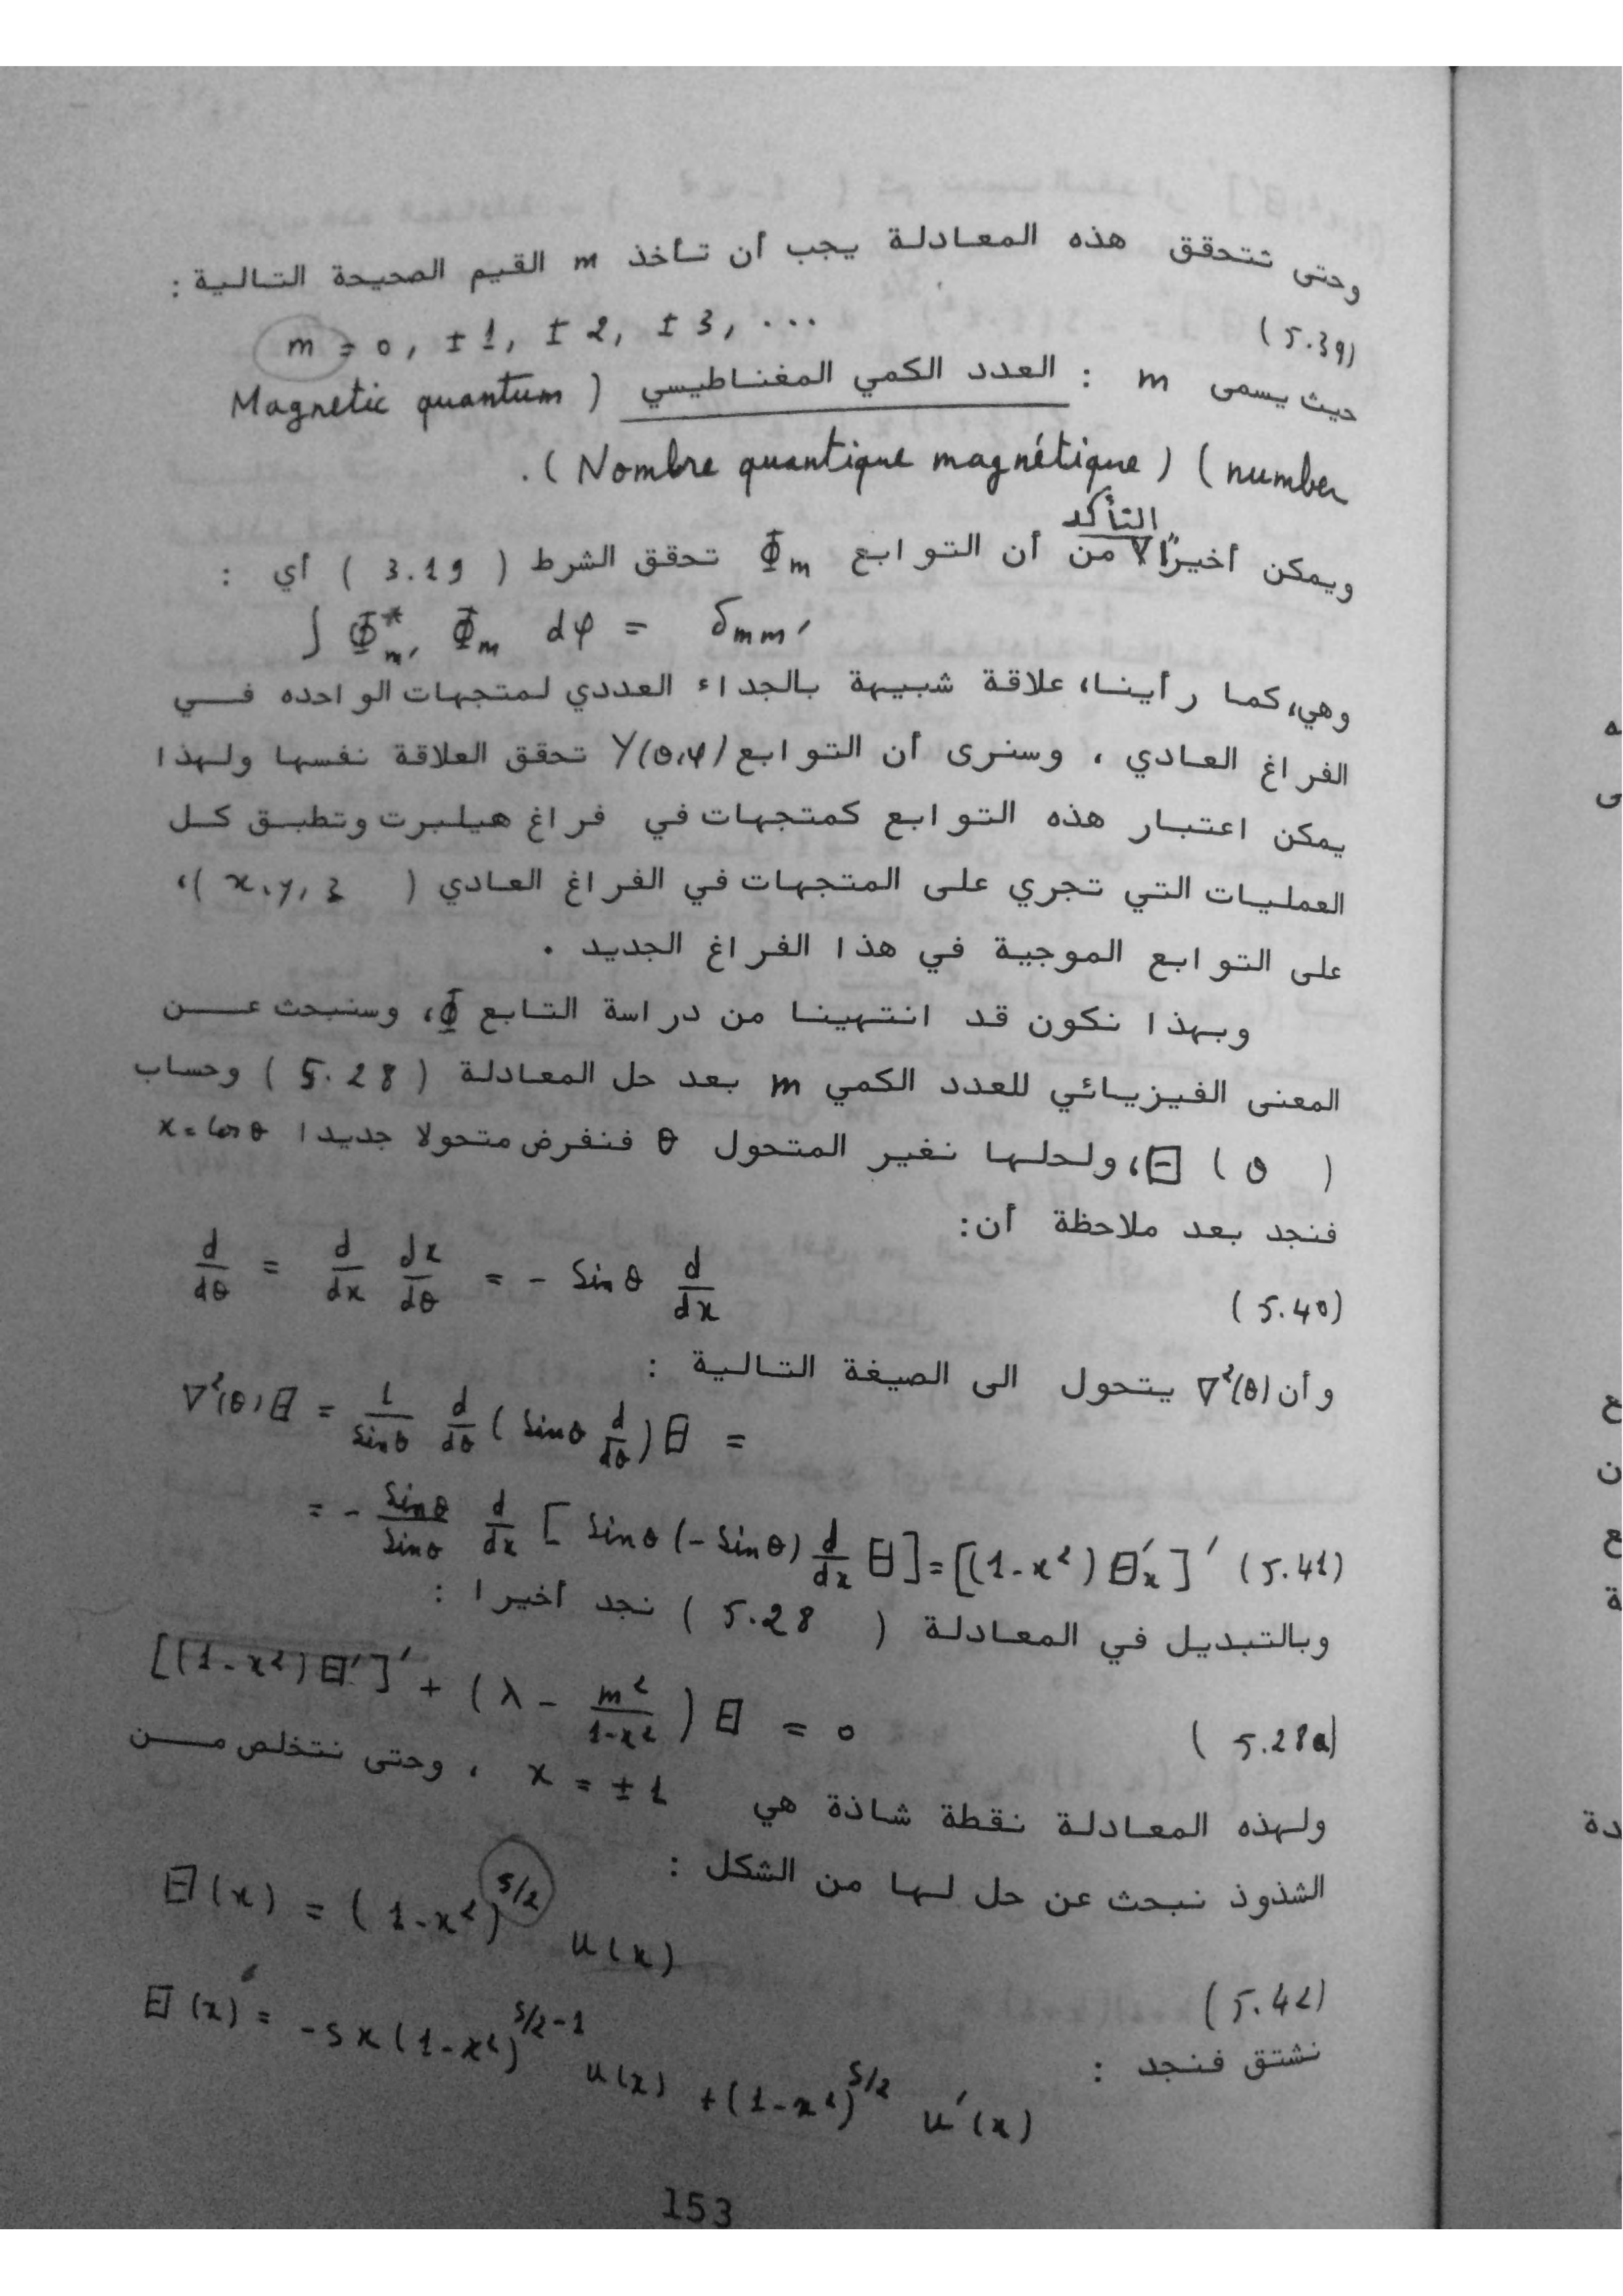 وحتى تتحقق هذه المعادلة يجب أن تأخذ m القيم الصحيحة التالية :
m = 0, ±1, ±2, ±3, ... (5.39)
حيث يسمى m : العدد الكمي المغناطيسي ( Magnetic quantum
number ) ( Nombre quantique magnétique ) .
التأكد
ويمكن أخيراً من أن التوابع Φm تحقق الشرط ( 3.19 ) أي :
∫ Φ*m' Φm dφ = δmm'
وهي، كما رأينا، علاقة شبيهة بالجداء العددي لمتجهات الواحده في
الفراغ العادي ، وسنرى أن التوابع Y(θ,φ) تحقق العلاقة نفسها ولهذا
يمكن اعتبار هذه التوابع كمتجهات في فراغ هيلبرت وتطبق كل
العمليات التي تجري على المتجهات في الفراغ العادي ( x, y, z )،
على التوابع الموجية في هذا الفراغ الجديد .
وبهذا نكون قد انتهينا من دراسة التابع Φ، وسنبحث عن
المعنى الفيزيائي للعدد الكمي m بعد حل المعادلة ( 5.28 ) وحساب
Θ ( θ )، ولحلها نغير المتحول θ فنفرض متحولا جديدا x = cos θ
فنجد بعد ملاحظة أن:
d/dθ = d/dx dx/dθ = - sin θ d/dx (5.40)
وأن ∇²(θ) يتحول الى الصيغة التالية :
∇²(θ) Θ = 1/sinθ d/dθ ( sinθ d/dθ ) Θ =
= - sinθ/sinθ d/dx [ sinθ (- sinθ) d/dx Θ ] = [(1-x²) Θ'x ]' (5.41)
وبالتبديل في المعادلة ( 5.28 ) نجد أخيرا :
[(1-x²) Θ']' + (λ - m²/1-x²) Θ = 0 (5.28a)
ولهذه المعادلة نقطة شاذة هي x = ±1 ، وحتى نتخلص من
الشذوذ نبحث عن حل لها من الشكل :
Θ(x) = (1-x²)^s/2 u(x) (5.42)
نشتق فنجد :
Θ'(x) = -s x (1-x²)^s/2-1 u(x) + (1-x²)^s/2 u'(x)
153